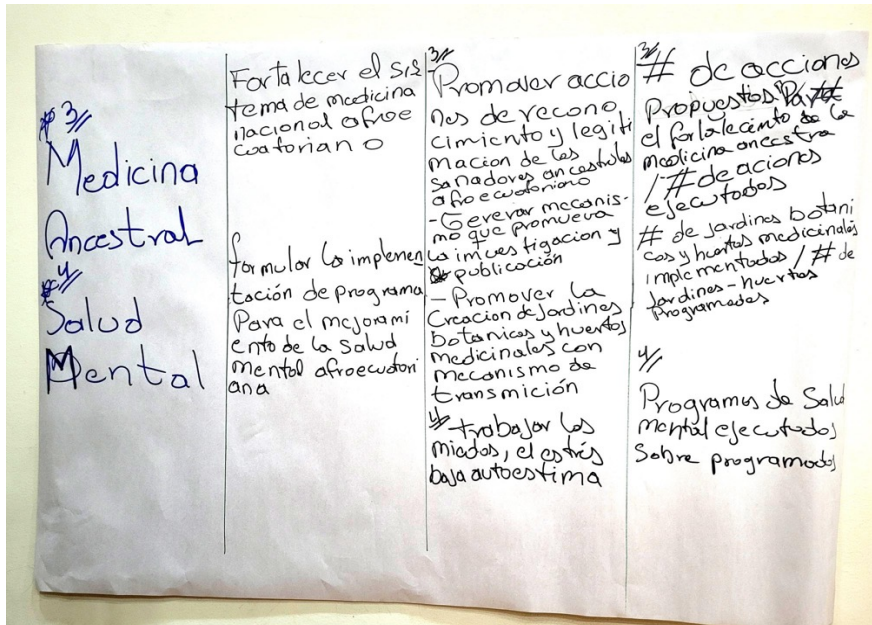 3//
Medicina
Ancestral
4//
Salud
Mental
Fortalecer el sis
tema de medicina
nacional afroe
cuatoriano
formular la implemen
tación de programa
Para el mejorami
ento de la salud
mental afroecuatori
ana
3//
Promover accio
nes de recono
cimiento y legiti
macion de los
sanadores ancestrales
afroecuatoriano
- Gererar mecanis-
mo que promueva
la investigacion y
publicación
- Promover la
Creacion de Jardines
botanicos y huertos
medicinales con
mecanismo de
transmición
4// trabajar los
miedos, el estrés
baja autoestima
3//
# de acciones
Propuestas Para
el fortalecimto de la
medicina ancestra
/ # de aciones
ejecutados
# de Jardines botani
cos y huertos medicinales
implementados / # de
Jardines - huertos
Programados
4//
Programas de Salud
mental ejecutados
Sobre programados